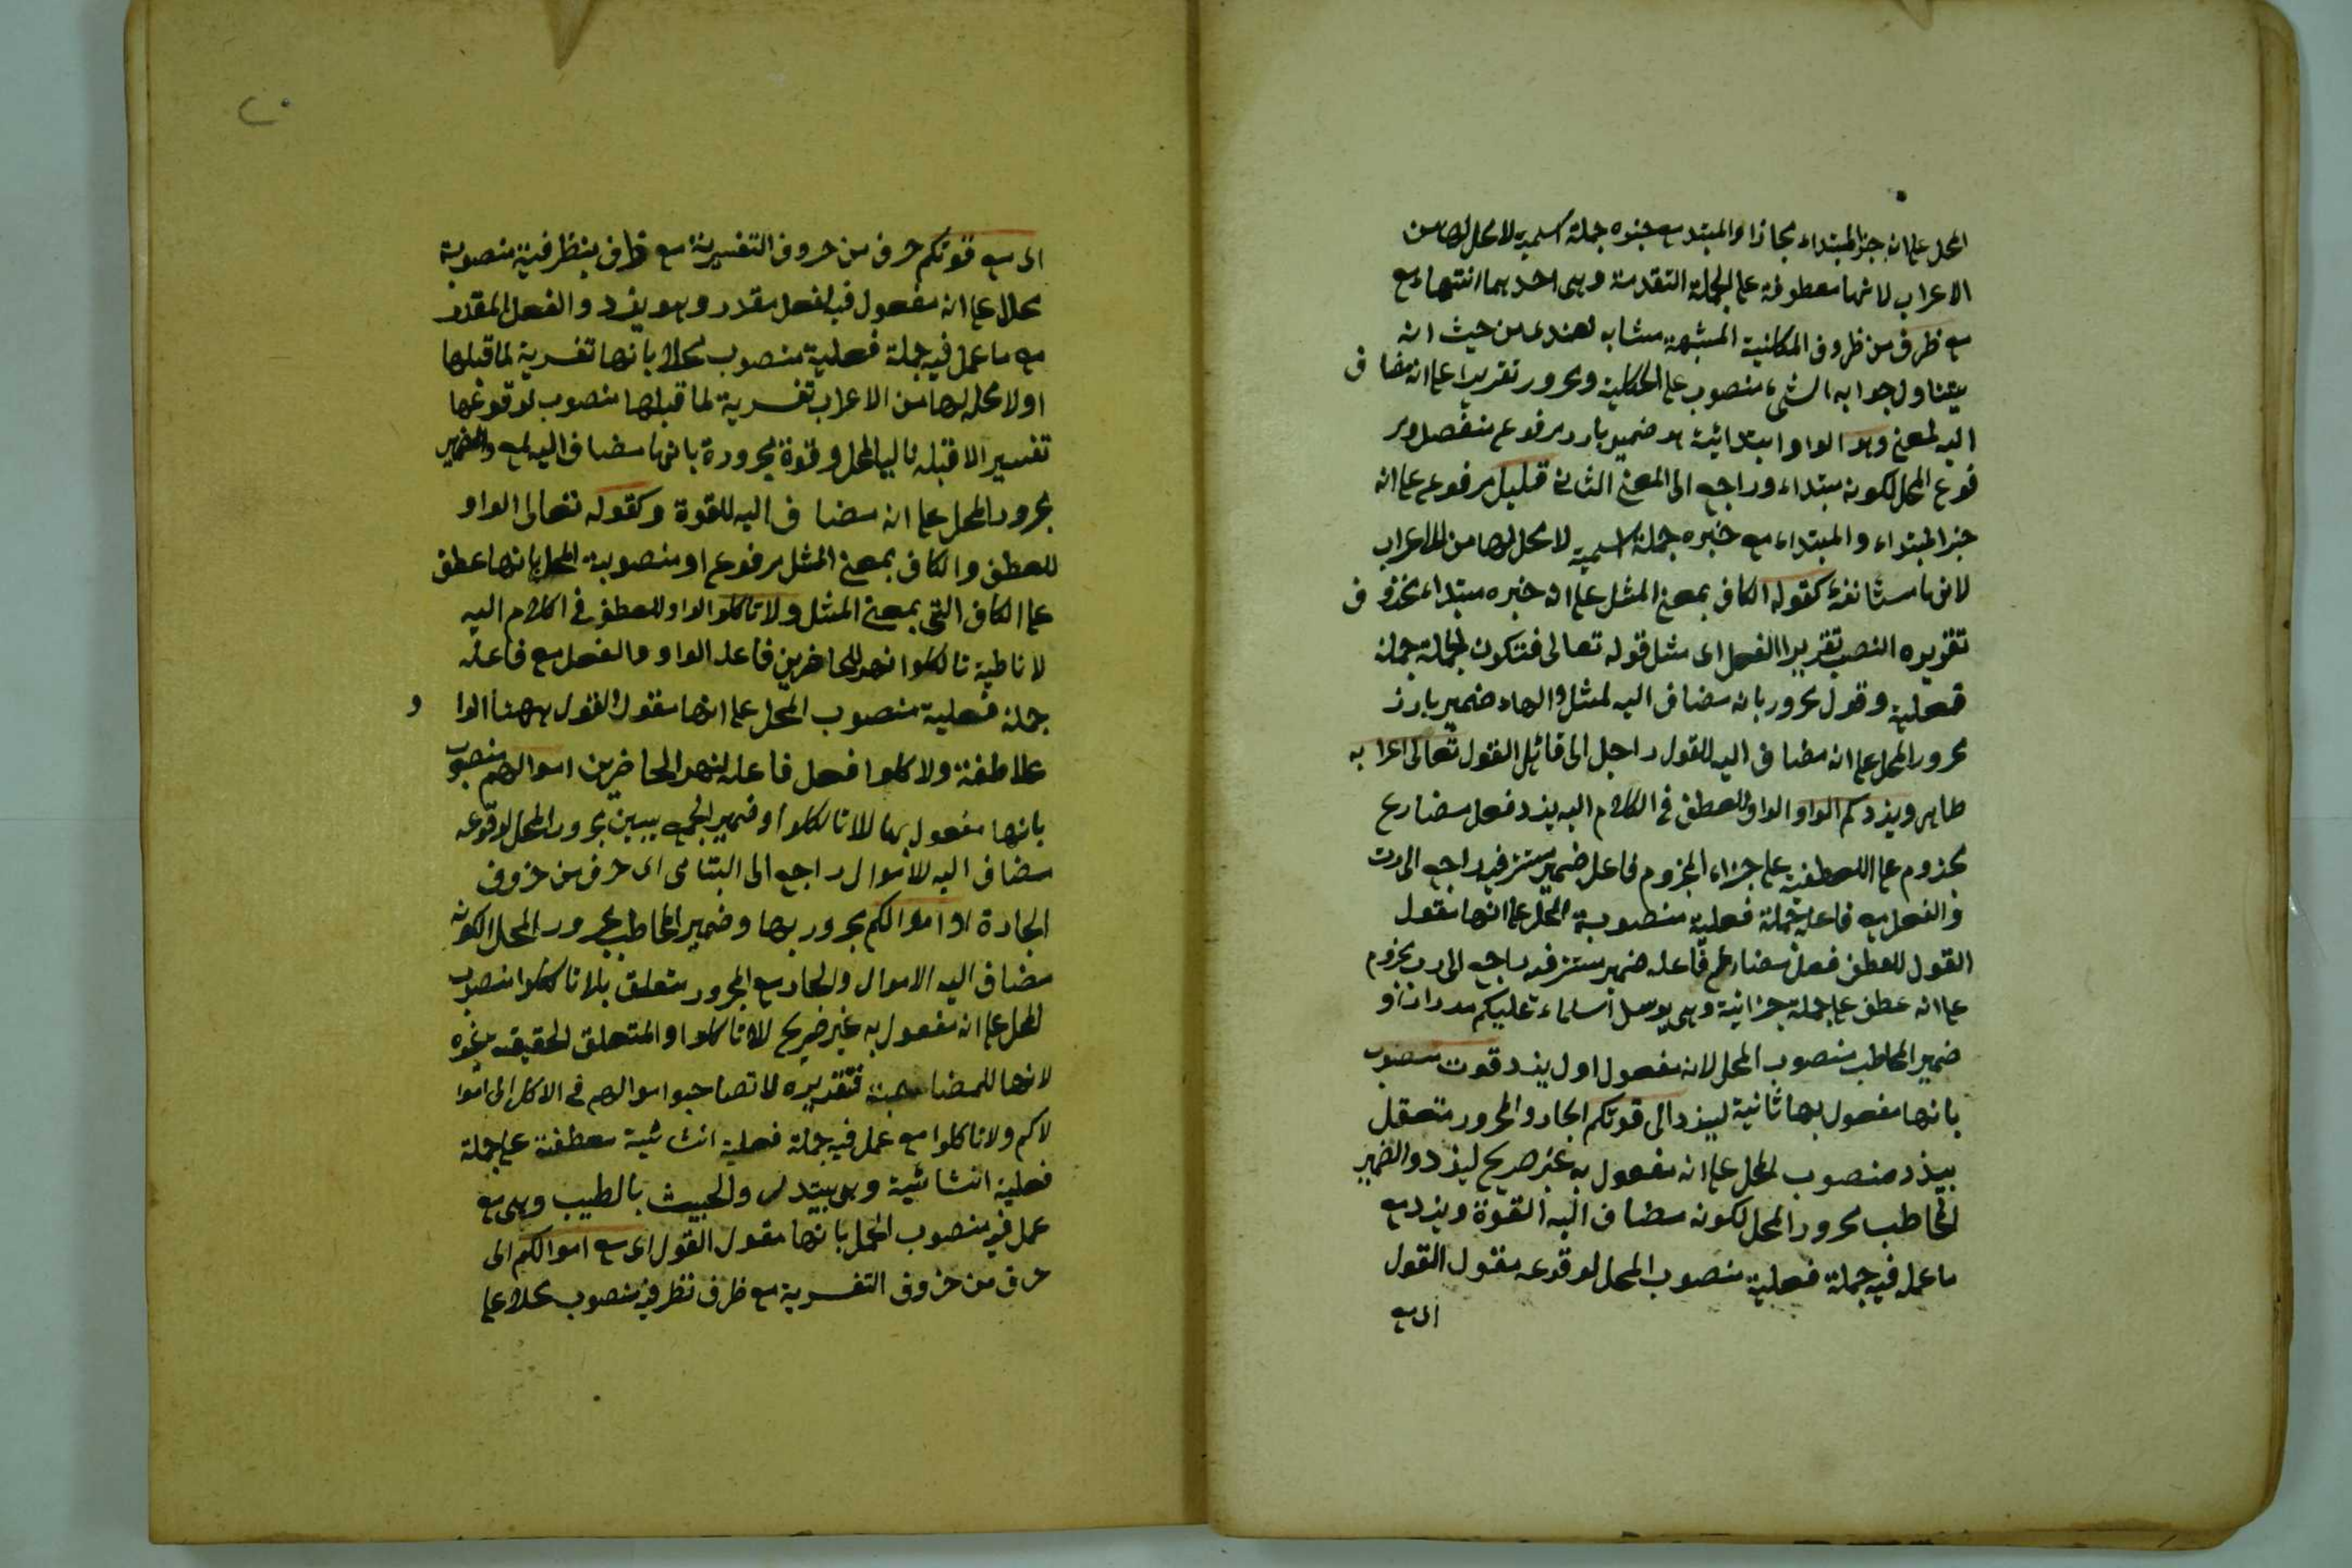 المحل على انه خبر المبتداء مجازا والمبتدا مع خبره جملة اسمية لا محل لها من
الاعراب لانها معطوفة على الجملة التقدمة وهى احديهما انتهاء مع
مع ظرف من ظروف المكانية المشبهة مشابه لعندى من حيث انه
يتناول جوابه الشىء منصوب على الحكاية ومجرور تقريرا على انه مضاف
اليه لمعنى وهو الواو ابتدائية هو ضمير بارد مرفوع منفصل مر
فوع المحل لكونه مبتداء وراجع الى المعنى الثانى قليل مرفوع على انه
خبر المبتداء والمبتداء مع خبره جملة اسمية لا محل لها من الاعراب
لانها مستأنفة كقوله الكاف بمعنى المثل على انه خبره مبتداء محذوف
تقريره النصب تقريرا الفعل اى مثل قوله تعالى فتكون الجملة جملة
فعلية وقول مجرور بانه مضاف اليه لمثل والهاء ضمير بارز
مجرور المحل على انه مضاف اليه للقول راجل الى قائل القول تعالى اعرابه
ظاهر ويزدكم الواو الواو للعطف فى الكلام اليه يزد فعل مضارع
مجزوم على العطفية على جزاء المجزوم فاعل ضمير مستتر فيه راجع الى رب
فالفعل مع فاعله جملة فعلية منصوبة المحل على انها مقول
القول للعطف فعل مضارع فاعله ضمير مستتر فيه راجع الى رب مجزوم
على انه عطف على جملة جزائية وهى يوسل السماء عليكم مدرارا او
ضمير المخاطب منصوب المحل لانه مفعول اول يزد قوت منصوب
بانها مفعول بها ثانية ليزد الى قوتكم الجار والمجرور متعقل
بيزد منصوب المحل على انه مفعول به غير صريح ليزد والضمير
المخاطب مجرور المحل لكونه مضاف اليه القوة ويزد مع
ما عمل فيه جملة فعلية منصوب المحل لوقوعه مقول القول
اى مع
اى مع قوتكم حرف من حروف التفسيرية مع ظرف بنظرفية منصوبة
محلا على انه مفعول فيه لفعل مقدر وهو يزد والفعل المقدر
مع ما عمل فيه جملة فعلية منصوب محلا بانها تفسرية لما قبلها
اولا محل لها من الاعراب تفسرية لما قبلها منصوب لوقوعها
تفسير الاقبله نا ليا المحل وقوة مجرورة بانها مضاف اليه لمع والضمير
مجرور المحل على انه مضاف اليه للقوة وكقوله تعالى الواو
للعطف والكاف بمعنى المثل مرفوع او منصوبة المحل بانها عطف
على الكاف التى بمعنى المثل ولا تاكلوا الواو للعطف فى الكلام اليه
لا ناهية تاكلوا نهى للحاضرين فاعله الواو والفعل مع فاعله
جملة فعلية منصوب المحل على انها مقول القول ههنا الوا و
علاطفة ولا كلوا فعل فاعله لنهى الحاضرين اموالهم منصوب
بانها مفعول بها للا تاكلوا وضمير الجمع يبين مجرور المحل لوقوعه
مضاف اليه للاموال راجع الى اليتامى اى حرف من حروف
الجارة او اموالكم مجرور بها وضمير المخاطب مجرور المحل لكونه
مضاف اليه الاموال والجار مع المجرور متعلق بلا تاكلوا منصوب
المحل على انه مفعول به غير صريح للا تاكلوا والمتعلق لحقيقة غيره
لانها للمضاحبة فتقديره لا تصاحبوا اموالهم فى الاكل الى اموا
لاكم ولا تاكلوا مع عمل فيه جملة فعلية انشائية معطفة على جملة
فعلية انشائية وهى يبتدلى والخبيث بالطيب وهى مع
عمل فيه منصوب المحل بانها مقول القول اى مع اموالكم الى
حرف من حروف التفسرية مع ظرف نظرفية منصوب محلا على